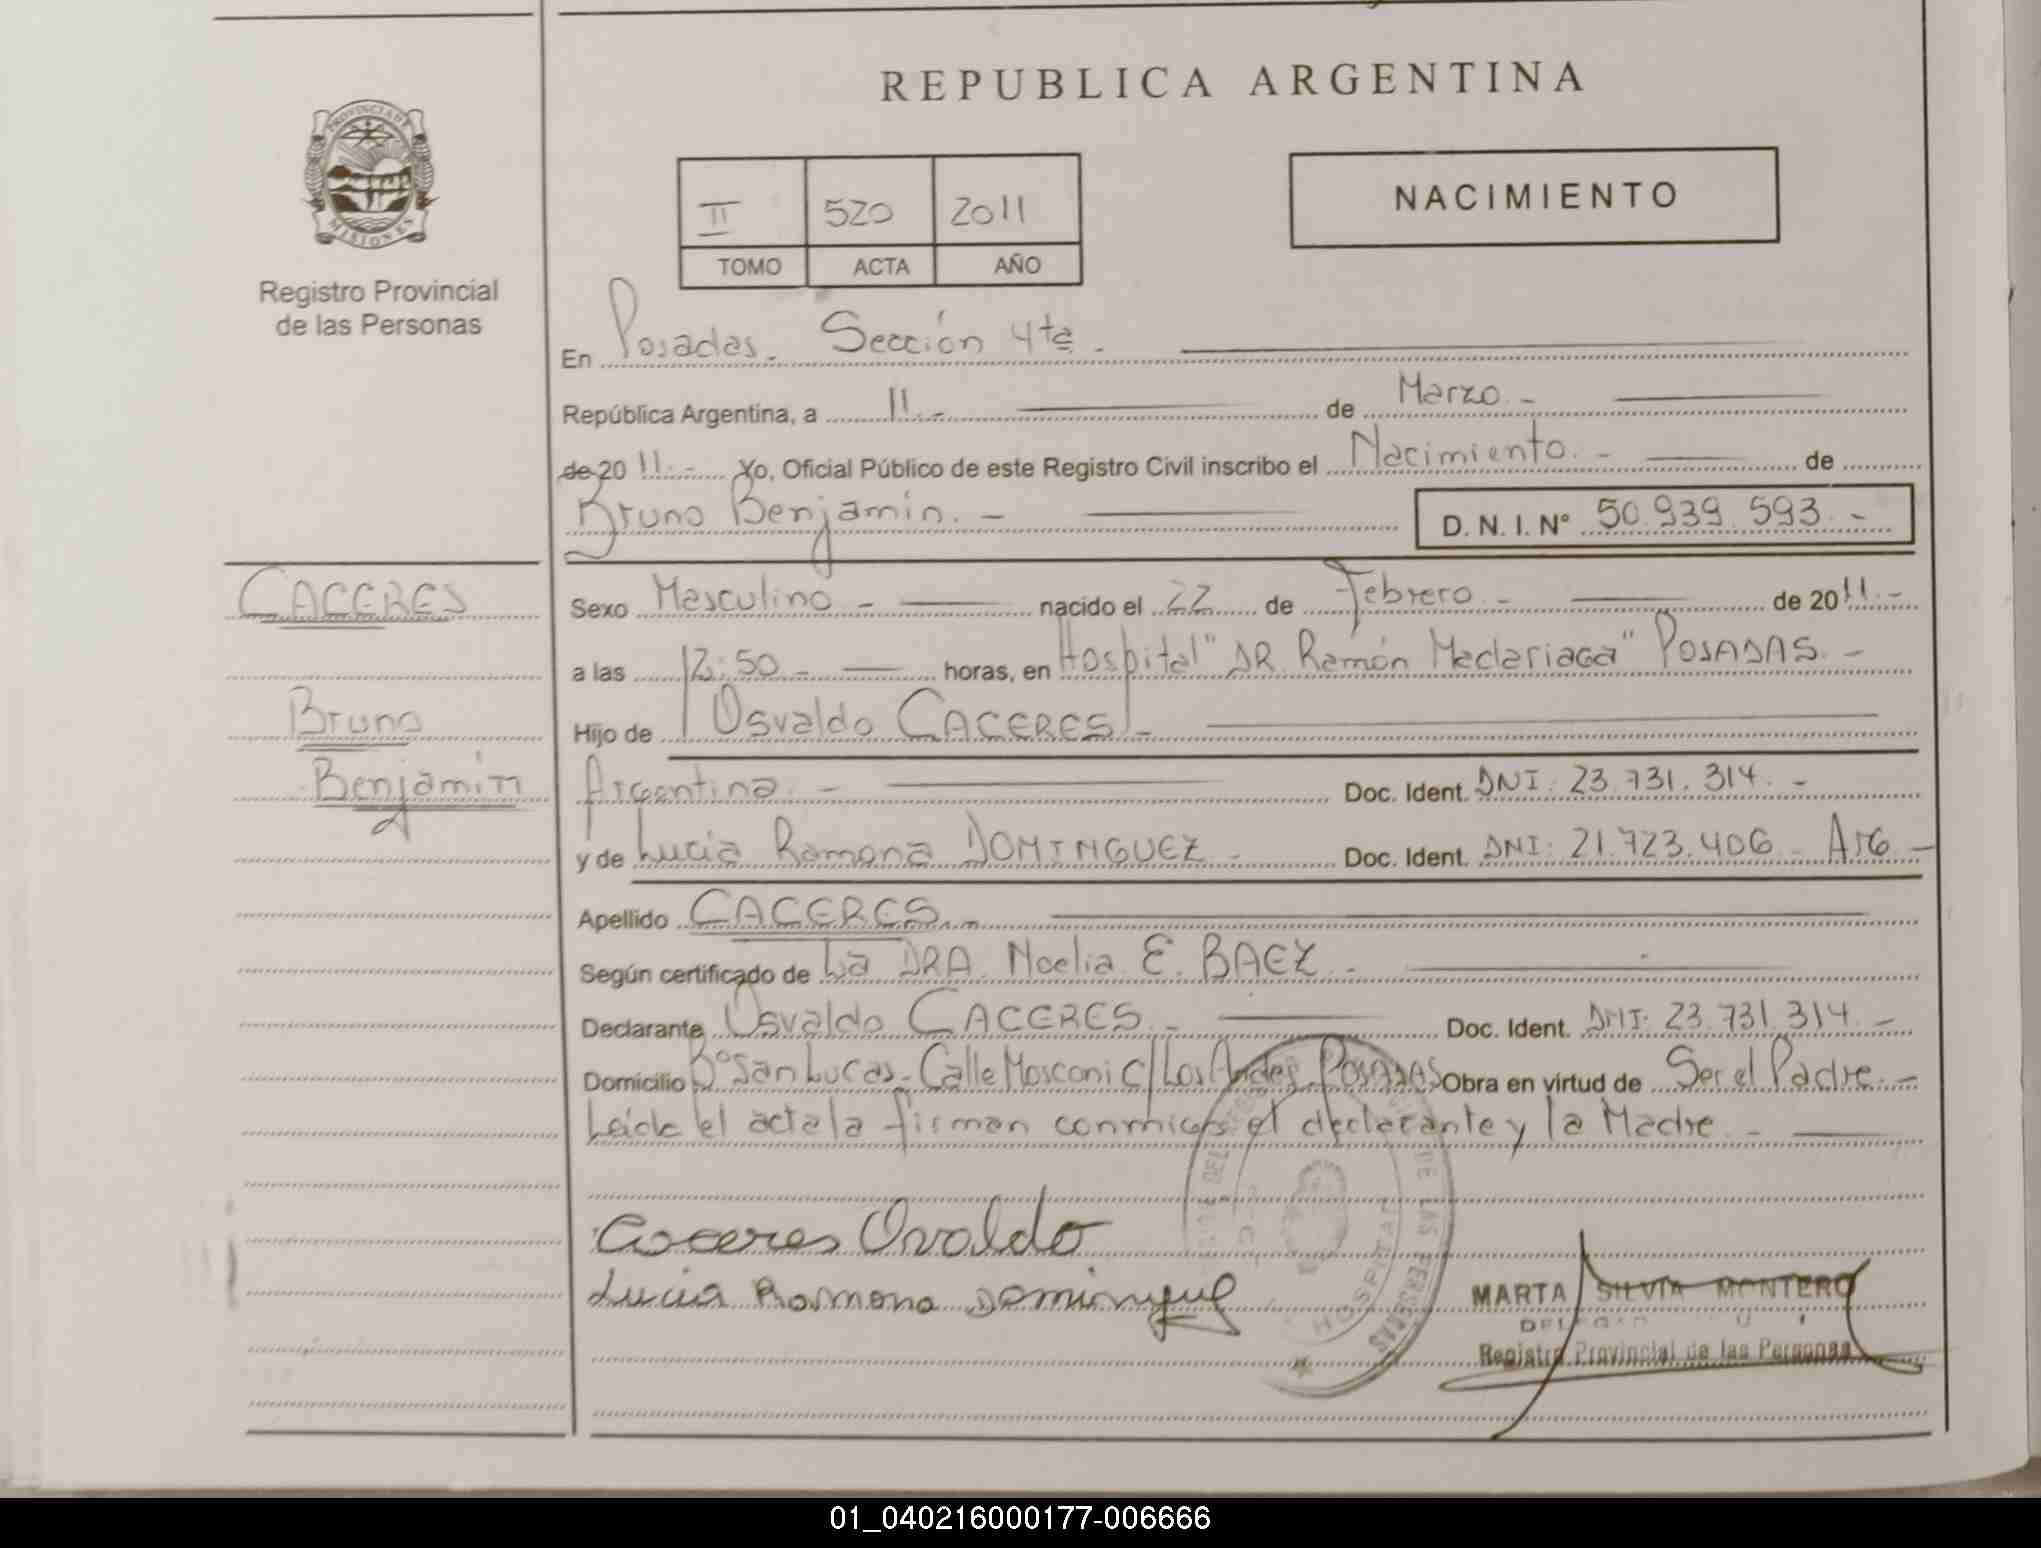 REPUBLICA ARGENTINA
PROVINCIA DE MISIONES
Registro Provincial
de las Personas
II 520 2011
TOMO ACTA AÑO
NACIMIENTO
En Posadas. Sección 4ta.
República Argentina, a 11.- de Marzo.-
de 20 11.- Yo, Oficial Público de este Registro Civil inscribo el Nacimiento.- de
Bruno Benjamín.- D. N. I. Nº 50.939.593.-
CACERES
Bruno
Benjamín
Sexo Masculino - nacido el 22 de Febrero.- de 2011.-
a las 12:50.- horas, en Hospital "DR. Ramón Madariaga" POSADAS.-
Hijo de Osvaldo CACERES.-
Argentina.- Doc. Ident. DNI: 23.731.314.-
y de Lucia Ramona DOMINGUEZ.- Doc. Ident. DNI: 21.723.406 - Arg.-
Apellido CACERES.-
Según certificado de La DRA. Noelia E. BAEZ.-
Declarante Osvaldo CACERES.- Doc. Ident. DNI: 23.731.314.-
Domicilio Bº San Lucas - Calle Mosconi c/ Los Andes. POSADAS Obra en virtud de Ser el Padre.-
Leída el acta la firman conmigo el declarante y la Madre.-
Caceres Osvaldo
Lucia Ramona Dominguez
DE LAS PERSONAS
HOSPITAL
MARTA SILVIA MONTERO
Registro Provincial de las Personas
01_040216000177-006666